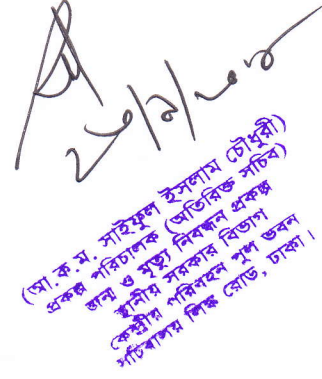 ২৮/২/২০১
(আ.ক.ম. সাইফুল ইসলাম চৌধুরী)
প্রকল্প পরিচালক (অতিরিক্ত সচিব)
জন্ম ও মৃত্যু নিবন্ধন প্রকল্প
স্থানীয় সরকার বিভাগ
কেন্দ্রীয় পরিবহন পুল ভবন
সচিবালয় লিঙ্ক রোড, ঢাকা।